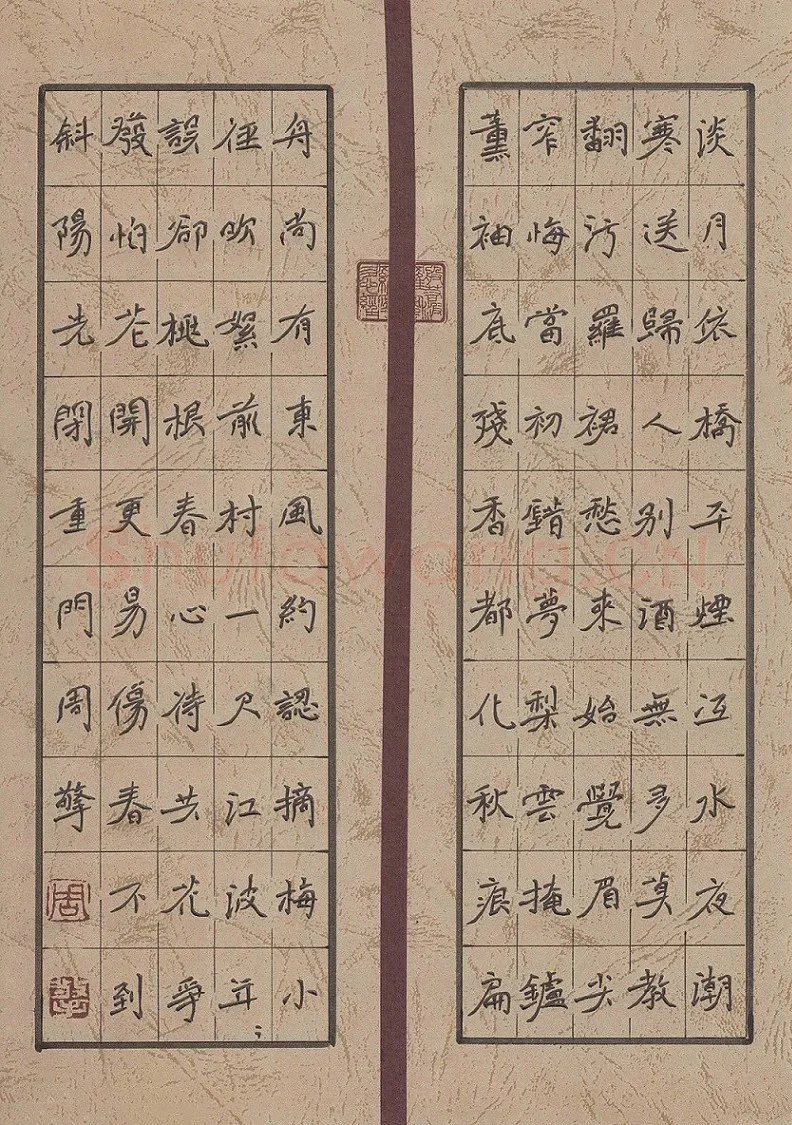 淡月依橋平煙沍水夜潮
寒送歸人別酒無多莫教
翻污羅裙愁來始覺眉尖
窄悔當初錯夢梨雲掩鑪
薰袖底殘香都化秋痕扁
舟尚有東風約認摘梅小
徑吹絮前村一尺江波年
誤卻桃根春心待共花爭
發怕花開更易傷春不到
斜陽先閉重門周擎
周
擎
shufawang.cn